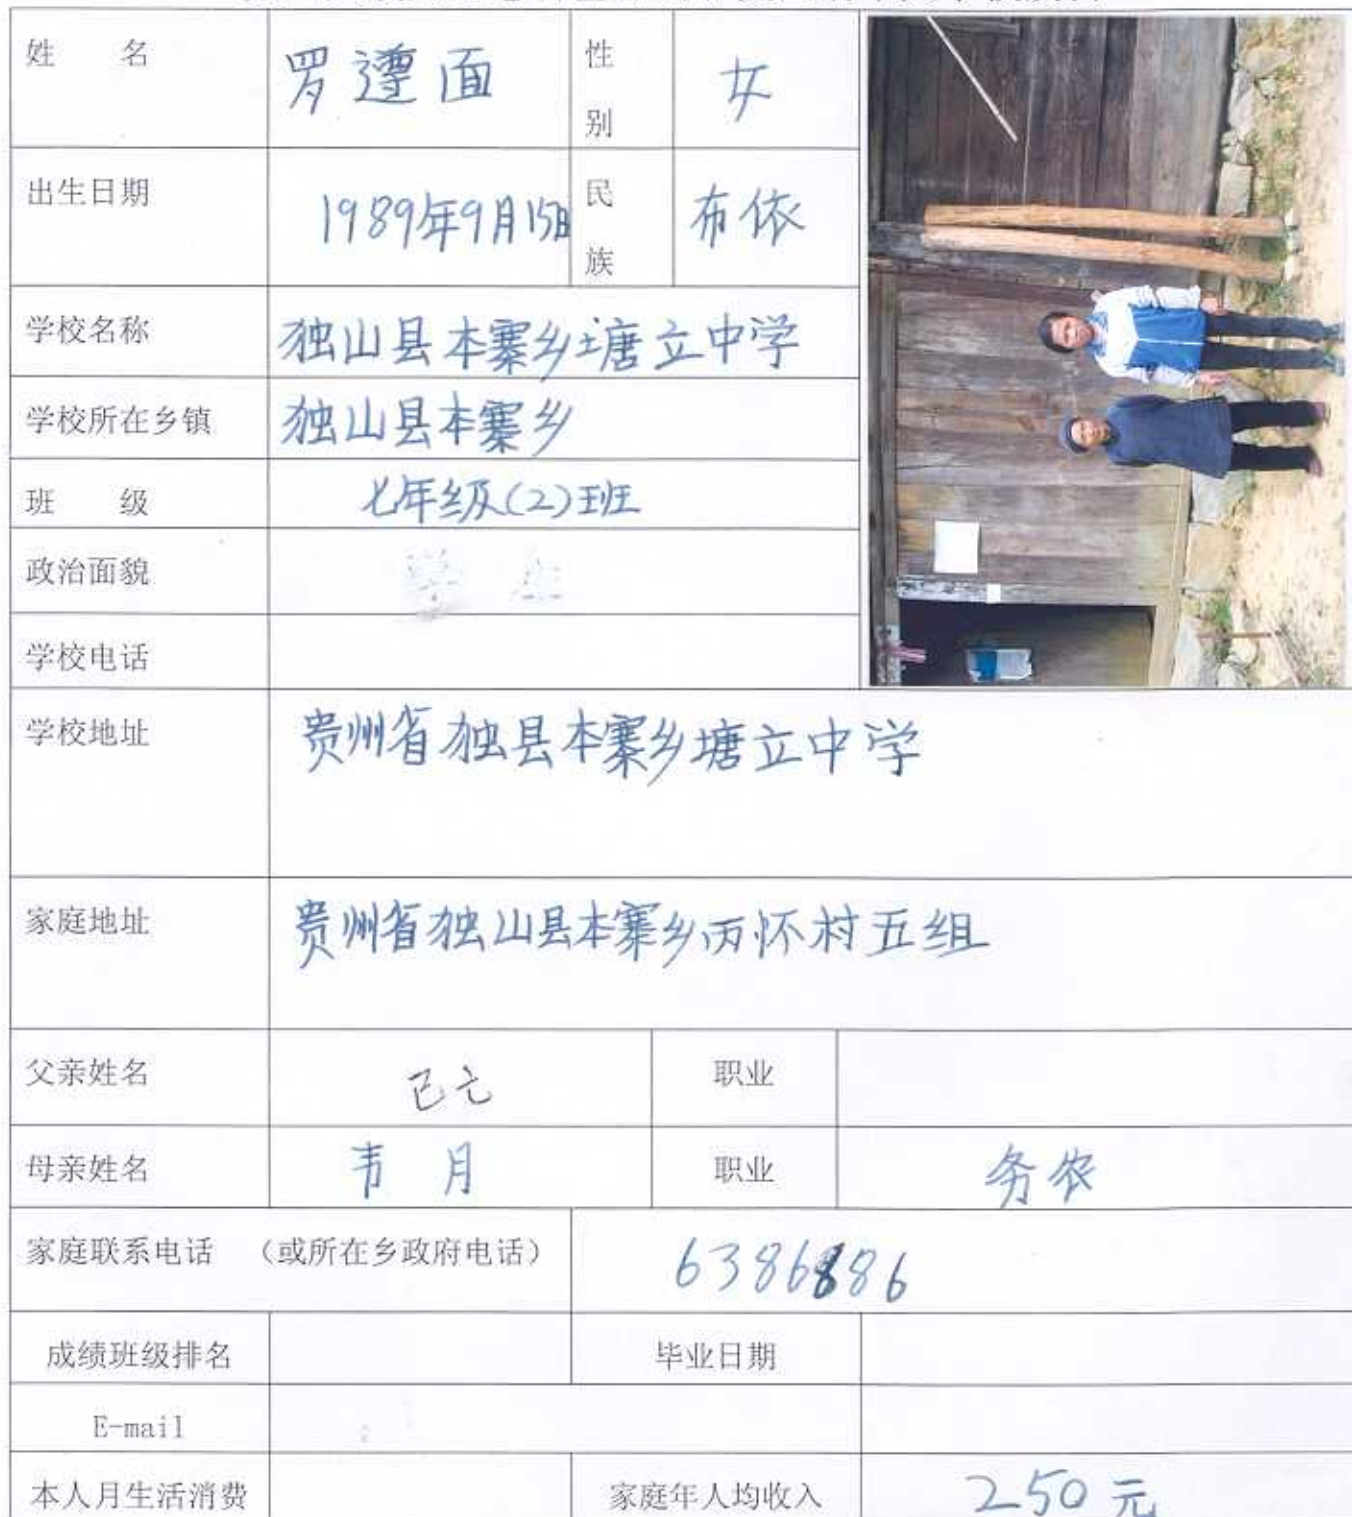 姓 名 罗遵面 性别 女
出生日期 1989年9月15日 民族 布依
学校名称 独山县本寨乡塘立中学
学校所在乡镇 独山县本寨乡
班 级 七年级(2)班
政治面貌
学校电话
学校地址 贵州省独县本寨乡塘立中学
家庭地址 贵州省独山县本寨乡丙怀村五组
父亲姓名 已亡 职业
母亲姓名 韦月 职业 务农
家庭联系电话 （或所在乡政府电话） 6386886
成绩班级排名 毕业日期
E-mail
本人月生活消费 家庭年人均收入 250元